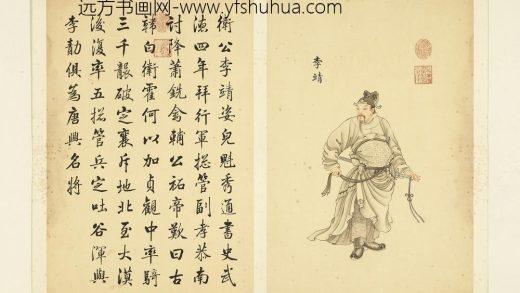 远方书画网: www.yfshuhua.com
李靖
衛公李靖姿皃魁秀通書史武
德四年拜行軍揔管副孝恭南
討降蕭銑禽輔公祏帝歎曰古
韓白衛霍何以加貞觀中率騎
三千襲破定襄斥地北至大漠
後復率五揔管兵定吐谷渾與
李勣俱為唐興名將